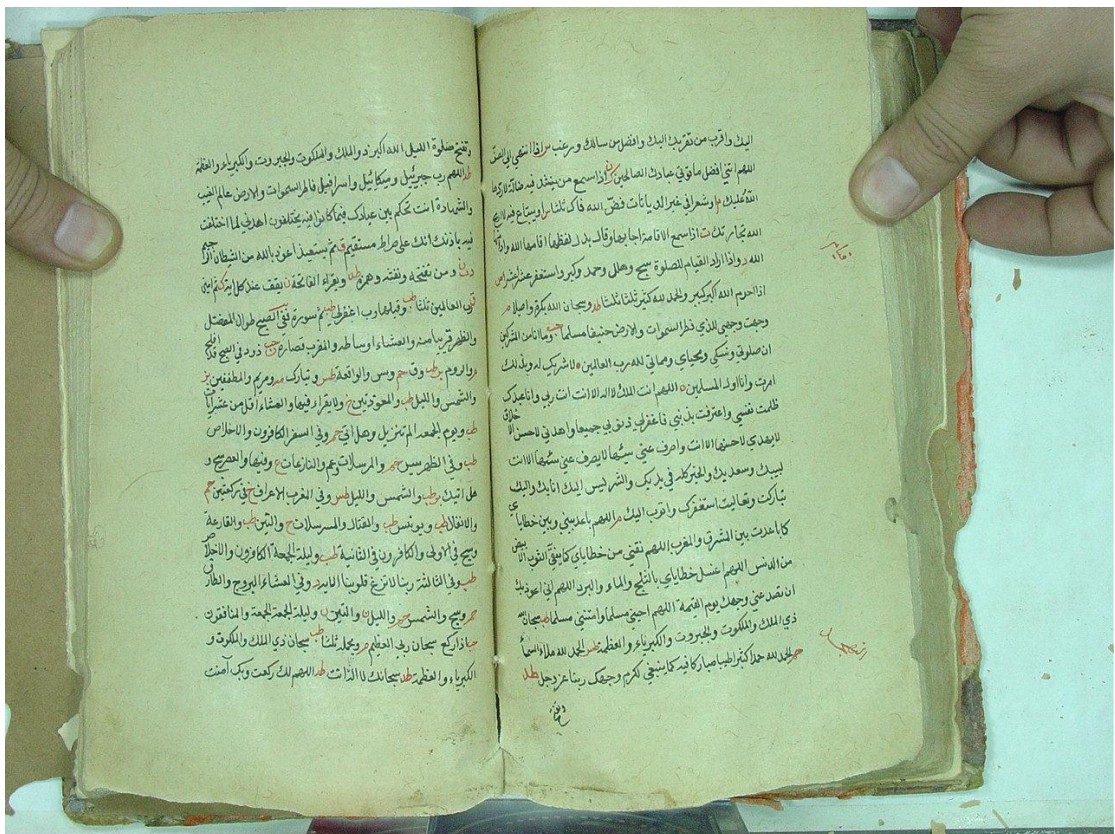 اليك واقرب من تقرب اليك وافضل من سالك ورغب س اذا انتهى الى الصف
اللهم اتني افضل ما توتي عبادك الصالحين اذا سمع من ينشد فيه ضالة لا ردها
الله عليك
الله تجارتك اذا سمع الاقامة اجابها وقال بدل لفظها اقامها الله وادامها
الله واذا اراد القيام للصلوة سبح وهلل وحمد وكبر واستغفر عشرا عشرا
اذا احرم الله اكبر كبيرا والحمد لله كثيرا ثلثا ثلثا وسبحان الله بكرة واصيلا
وجهت وجهي للذي فطر السموات والارض حنيفا مسلما وما انا من المشركين
ان صلوتي ونسكي ومحياي ومماتي لله رب العالمين لا شريك له وبذلك
امرت وانا اول المسلمين اللهم انت الملك لا اله الا انت انت ربي وانا عبدك
ظلمت نفسي واعترفت بذنبي فاغفر لي ذنوبي جميعا واهدني لاحسن الاخلاق
لا يهدي لاحسنها الا انت واصرف عني سيئها لا يصرف عني سيئها الا انت
لبيك وسعديك والخير كله في يديك والشر ليس اليك انا بك واليك
تباركت وتعاليت استغفرك واتوب اليك اللهم باعد بيني وبين خطاياي
كما باعدت بين المشرق والمغرب اللهم نقني من خطاياي كما ينقى الثوب الابيض
من الدنس اللهم اغسل خطاياي بالثلج والماء والبرد اللهم اني اعوذ بك
ان تصد عني وجهك يوم القيمة اللهم احيني مسلما وامتني مسلما طد سبحان
ذي الملك والملكوت والجبروت والكبرياء والعظمة طس الحمد لله ملاء السماء
الحمد لله حمدا كثيرا طيبا مباركا فيه كما ينبغي لكرم وجهك ربنا عز وجل طد
وتفتح صلوة الليل الله اكبر ذو الملك والملكوت والجبروت والكبرياء والعظمة
طد اللهم رب جبرئيل وميكائيل واسرافيل فاطر السموات والارض عالم الغيب
والشهادة انت تحكم بين عبادك فيما كانوا فيه يختلفون اهدني لما اختلفت
فيه باذنك انك على صراط مستقيم ثم يستعيذ اعوذ بالله من الشيطان الرجيم
ومن نفخه ونفثه وهمزه ويقراء الفاتحة يقف عند كل اية ثم امين
العالمين ثلثا وقبلها رب اغفر لي ثم سورة ففي الصبح طوال المفصل
والظهر قريبا منه والعشاء اوساطه والمغرب قصاره
والروم وق حم ويس والواقعة طس وتبارك ومريم والمطففين
والشمس والليل طب والمعوذتين ولا يقراء فيها والعشاء اقل من عشر ايات
طب ويوم الجمعة الم تنزيل وهل اتى وفي السفر الكافرون والاخلاص
طب وفي الظهر والمرسلات وعم والنازعات وفيها والعصر سبح و
هل اتيك طب والشمس والليل طس وفي المغرب الاعراف في ركعتين
والانفال طب ويونس طب والقتال والمرسلات والتين طب والقارعة
وسبح في الاولى والكافرون في الثانية طب وليلة الجمعة الكافرون والاخلاص
طب وفي الثالثة ربنا لا تزغ قلوبنا الاية وفي العشاء البروج والطارق
وسبح والشمس والليل والتين وليلة الجمعة الجمعة والمنافقون
اذا ركع سبحان ربي العظيم وبحمده ثلثا طب سبحان ذي الملك والملكوت و
الكبرياء والعظمة طد سبحانك لا اله الا انت طد اللهم لك ركعت وبك آمنت